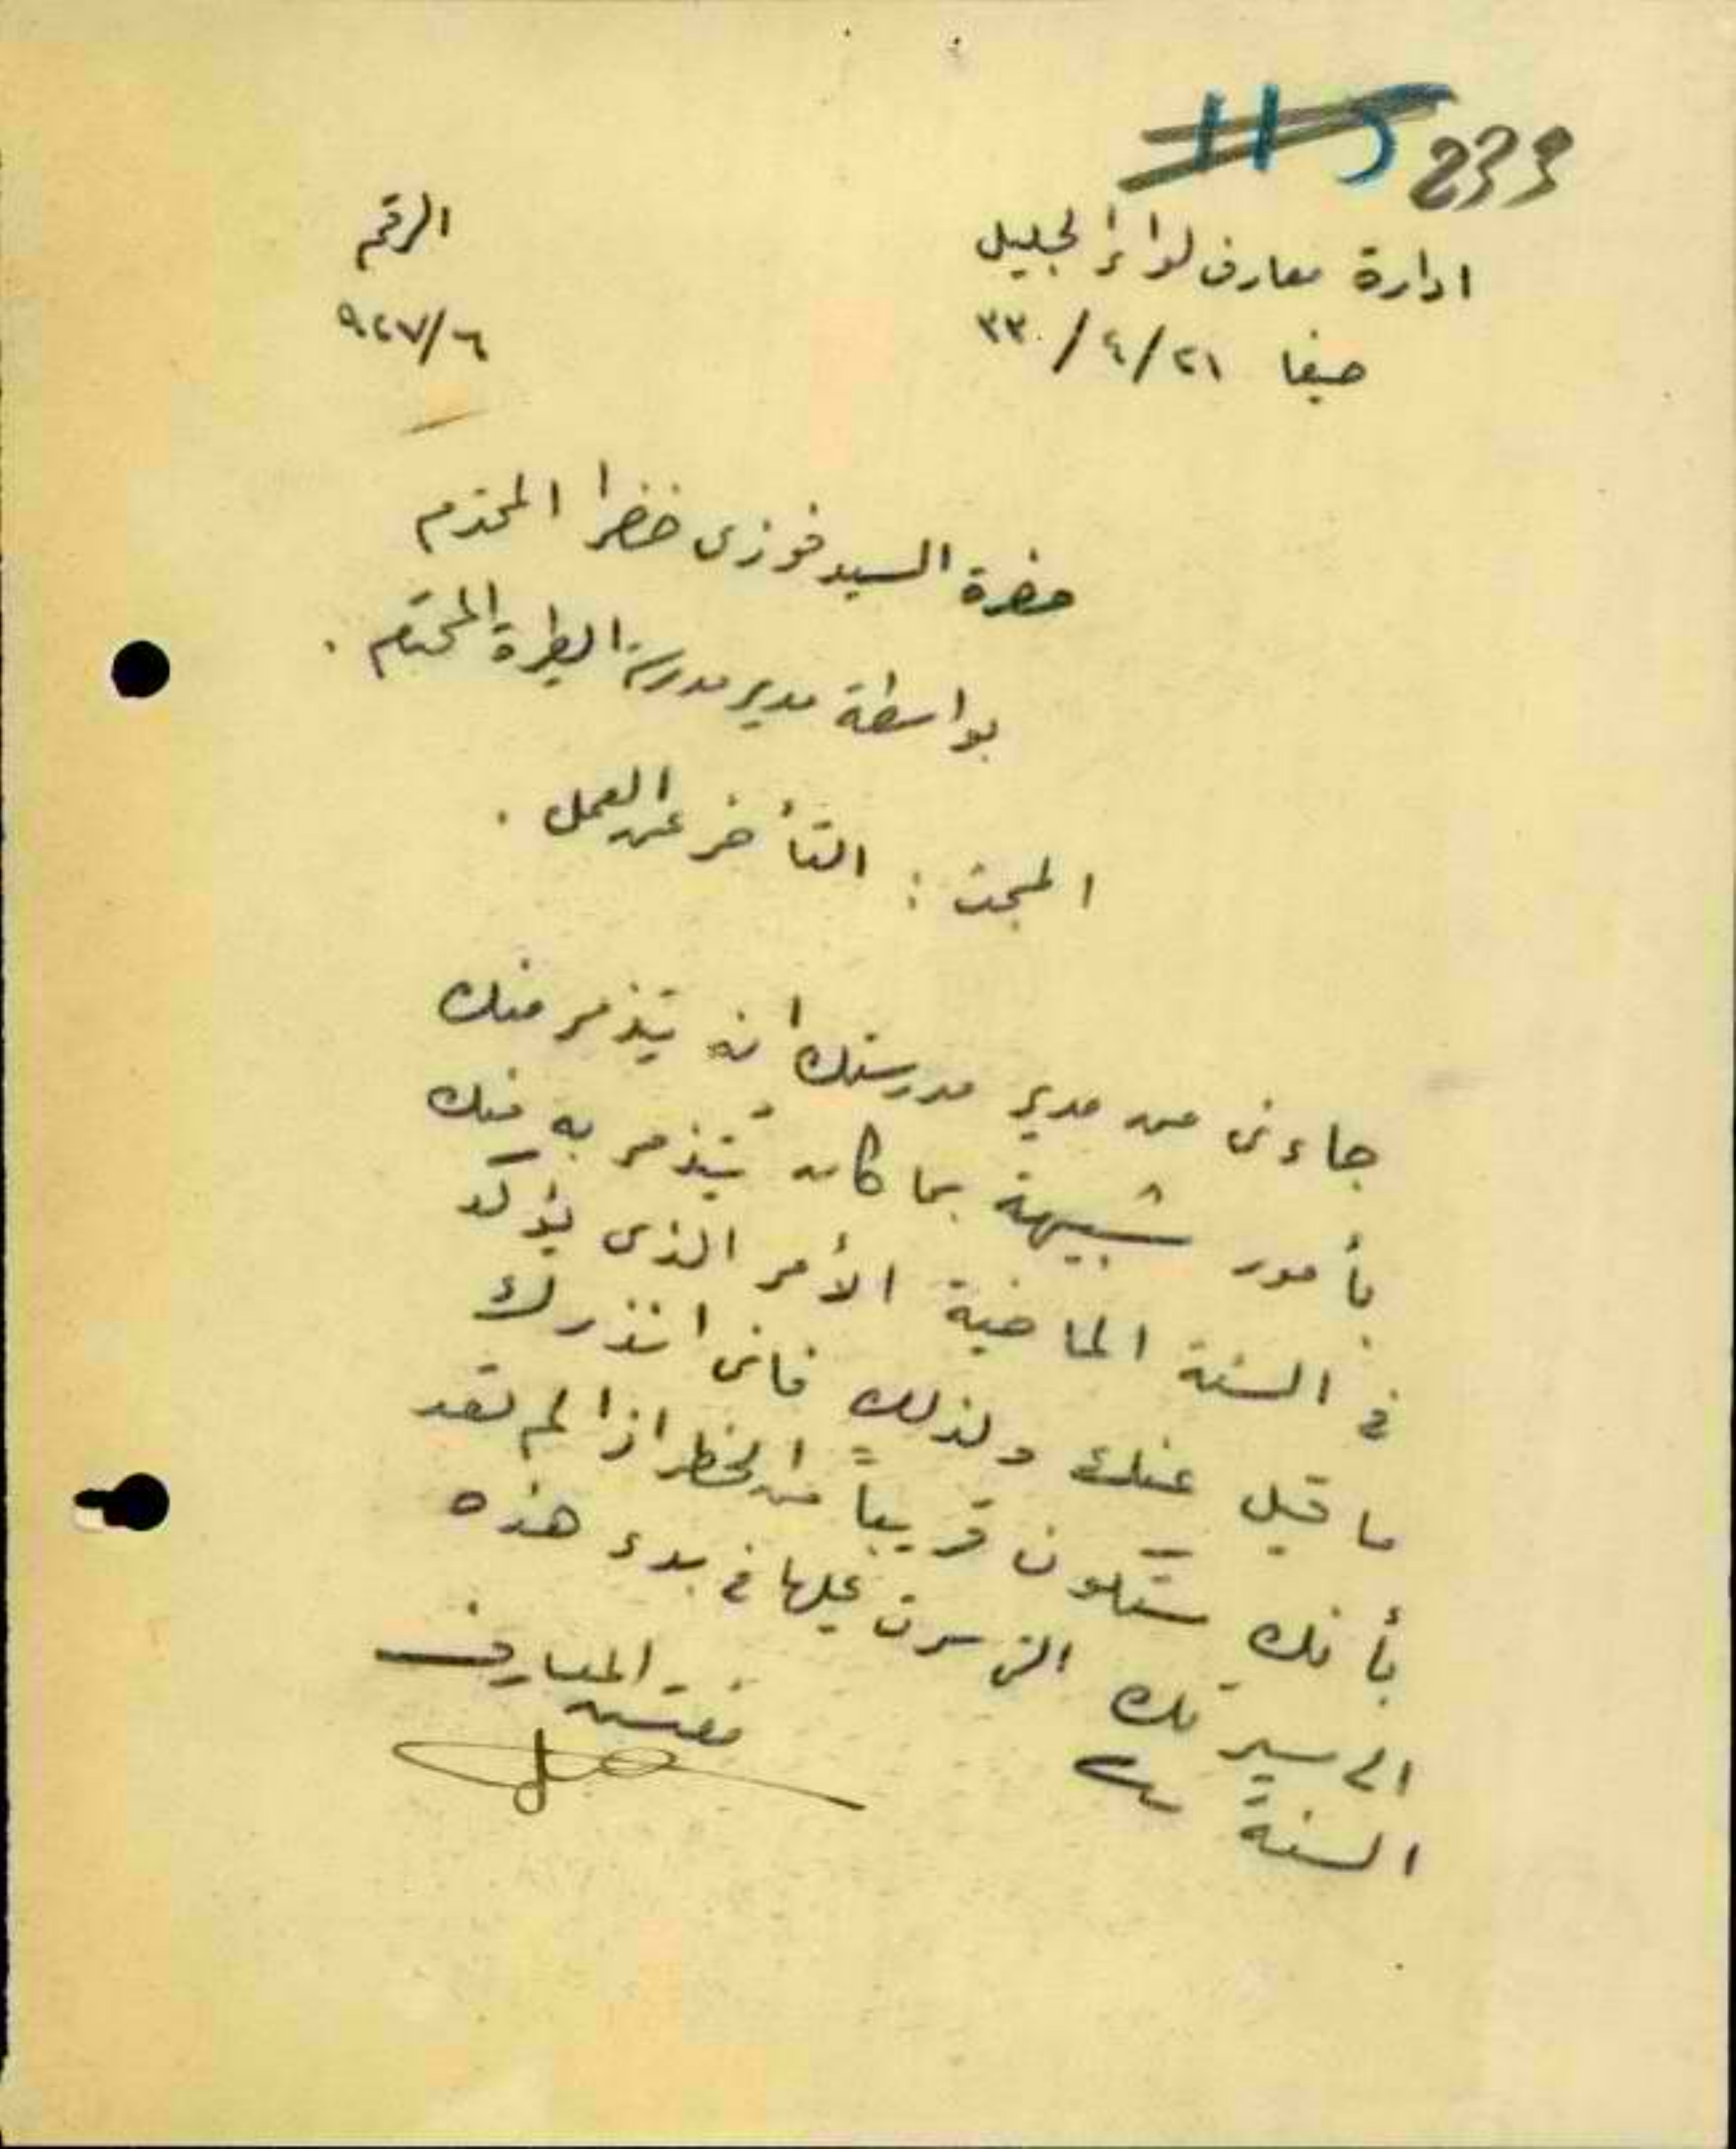 115 233
ادارة معارف لواء الجليل
الرقم
حيفا ٢١/٤/٣٣٠
٩٢٧/٦
حضرة السيد فوزى خضرا المحترم
بواسطة مدير مدرسة الطيرة المحترم .
المبحث : التأخر عن العمل .
جاءنى من مدير مدرستك انه يتذمر منك
بأمور شبيهة بما كان يتذمر به منك
فى السنة الماضية الأمر الذى يؤكد
ما قيل عنك ولذلك فانى انذرك
بأنك ستكون قريباً من الخطر اذا لم تعد
الى سيرتك التى سرت عليها فى بدء هذه
السنة
مفتش المعارف